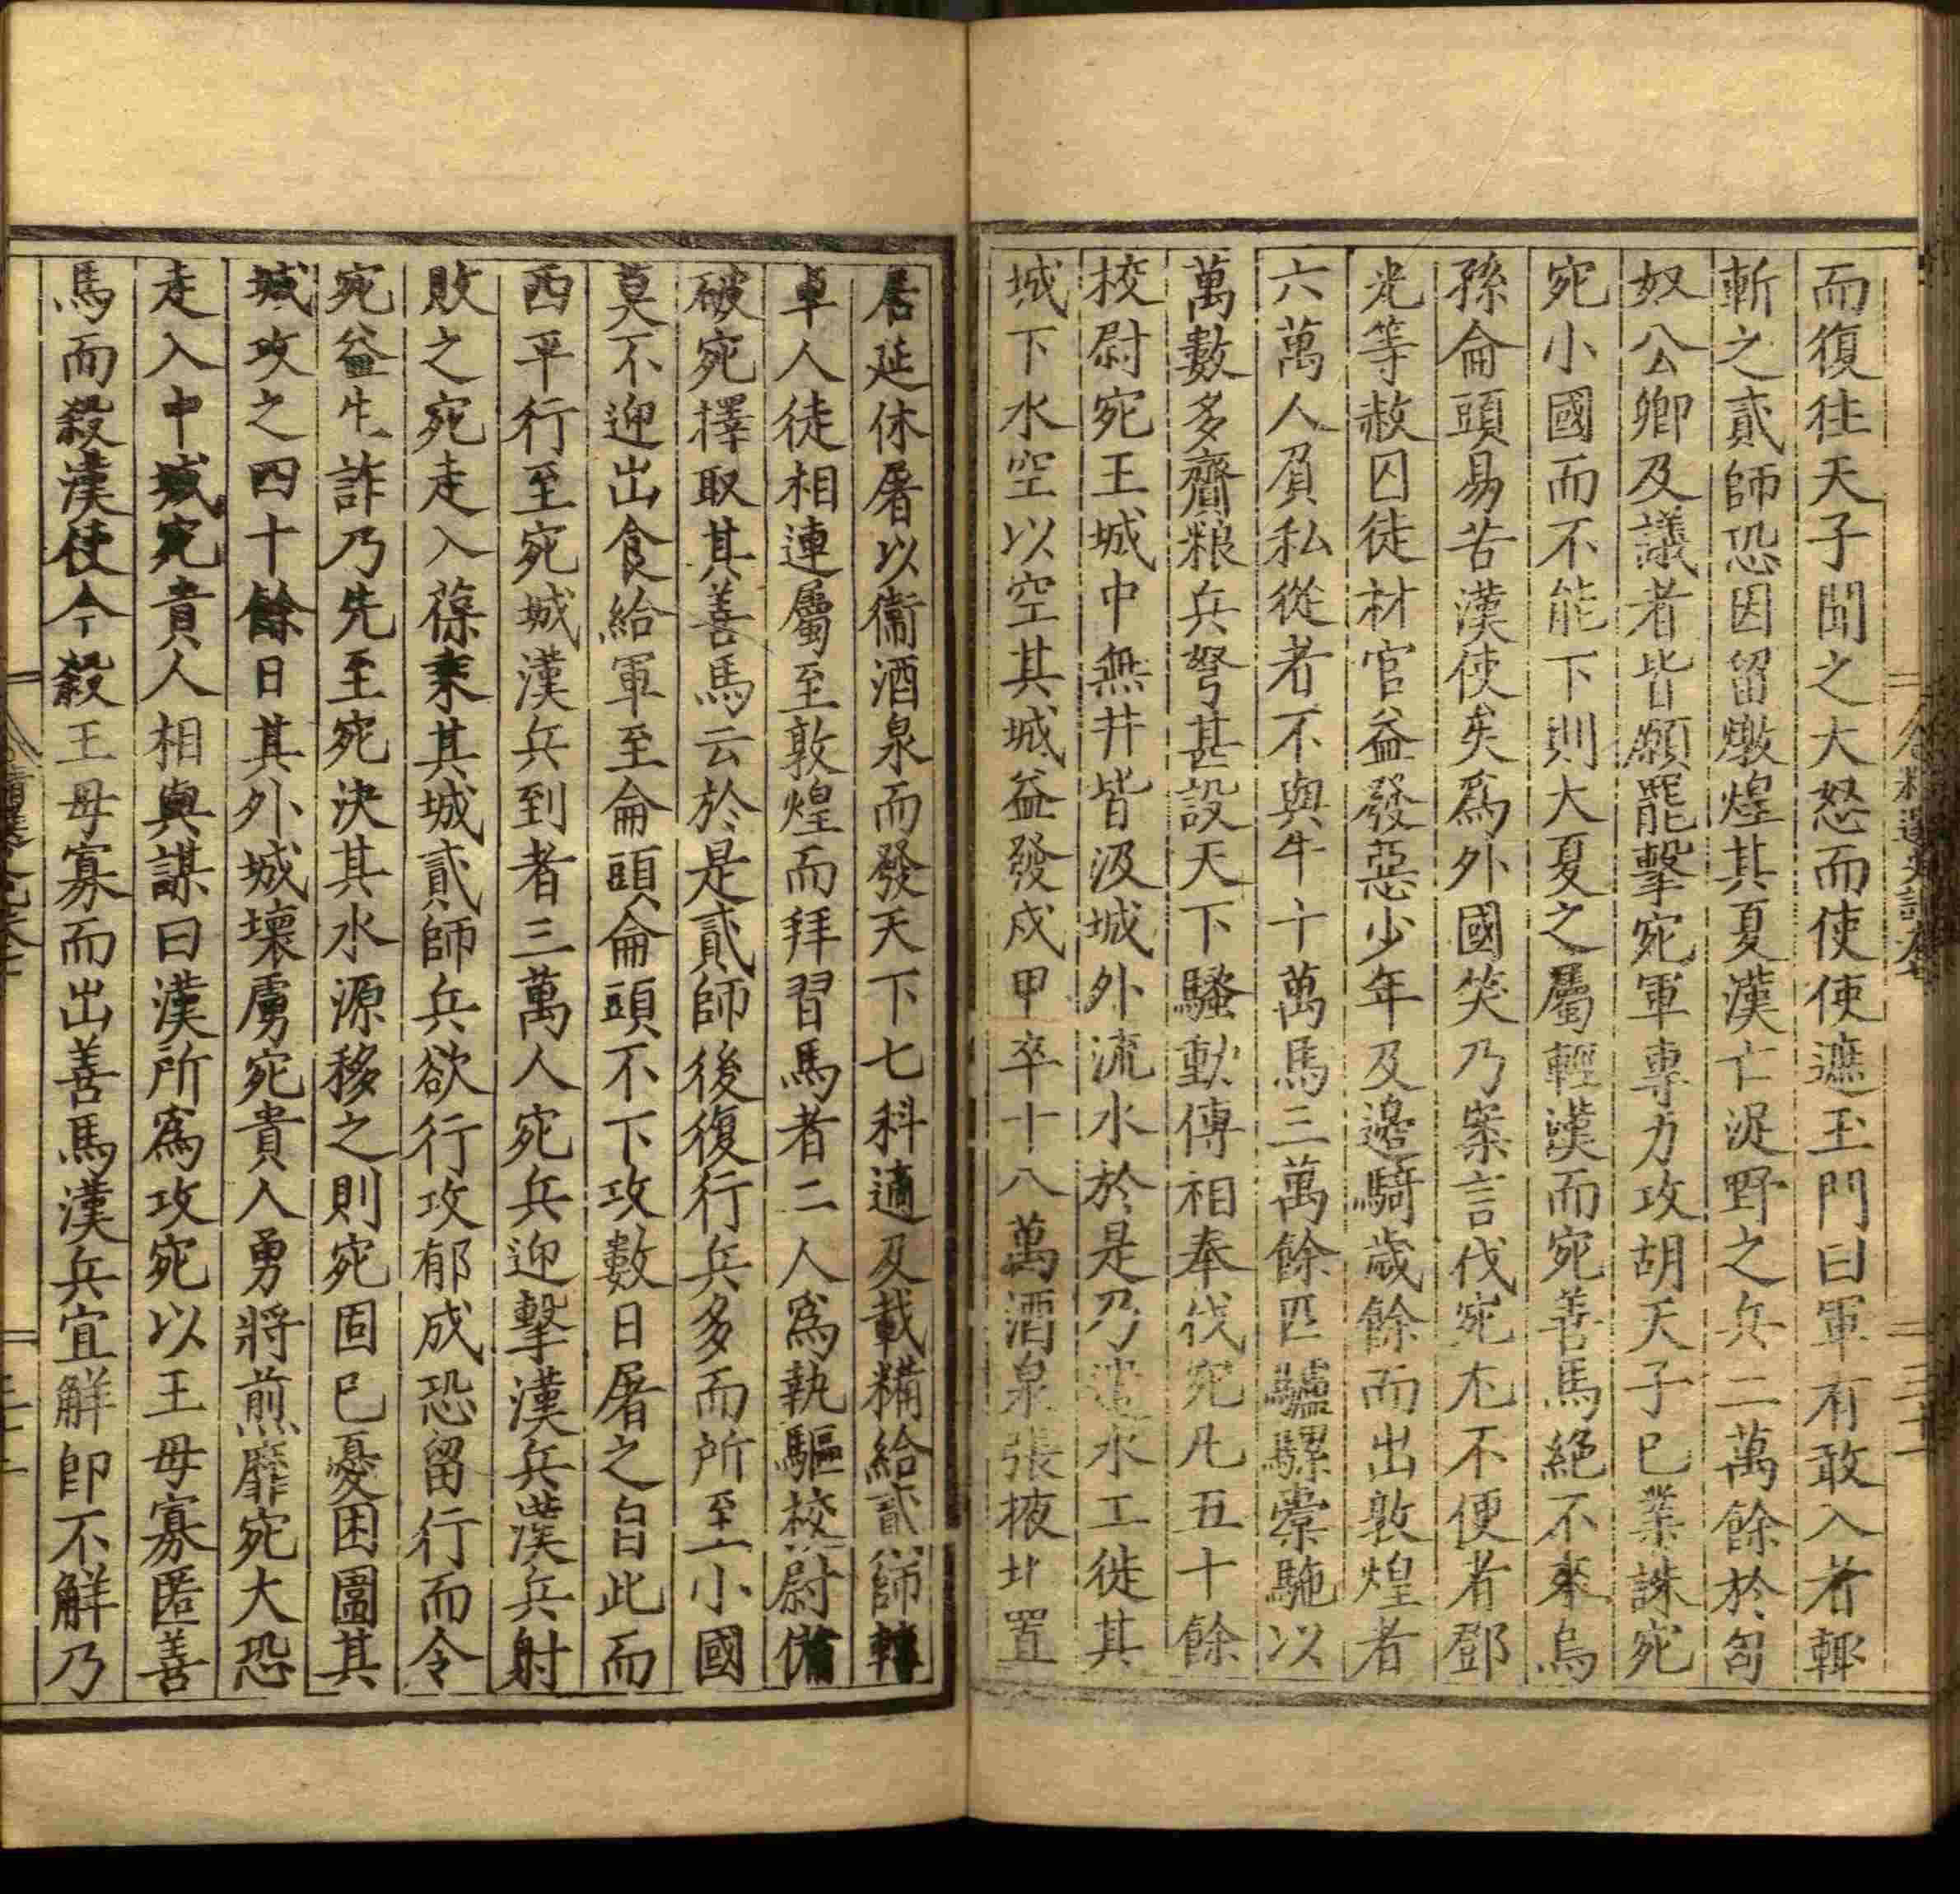 而復往天子聞之大怒而使使遮玉門曰軍有敢入者輒
斬之貳師恐因留燉煌其夏漢亡浞野之兵二萬餘於匈
奴公卿及議者皆願罷擊宛軍專力攻胡天子已業誅宛
宛小國而不能下則大夏之屬輕漢而宛善馬絕不來烏
孫侖頭易苦漢使矣爲外國笑乃案言伐宛尤不便者鄧
光等赦囚徒材官益發惡少年及邊騎歲餘而出敦煌者
六萬人負私從者不與牛十萬馬三萬餘匹驢騾橐駞以
萬數多齎粮兵弩甚設天下騷動傳相奉伐宛凡五十餘
校尉宛王城中無井皆汲城外流水於是乃遣水工徙其
城下水空以空其城益發戍甲卒十八萬酒泉張掖北置
居延休屠以衞酒泉而發天下七科適及載糒給貳師轉
車人徒相連屬至敦煌而拜習馬者二人爲執驅校尉備
破宛擇取其善馬云於是貳師後復行兵多而所至小國
莫不迎出食給軍至侖頭侖頭不下攻數日屠之自此而
西平行至宛城漢兵到者三萬人宛兵迎擊漢兵漢兵射
敗之宛走入葆乘其城貳師兵欲行攻郁成恐留行而令
宛益生詐乃先至宛決其水源移之則宛固已憂困圍其
城攻之四十餘日其外城壞虜宛貴人勇將煎靡宛大恐
走入中城宛貴人相與謀曰漢所爲攻宛以王毋寡匿善
馬而殺漢使今殺王毋寡而出善馬漢兵宜解即不解乃